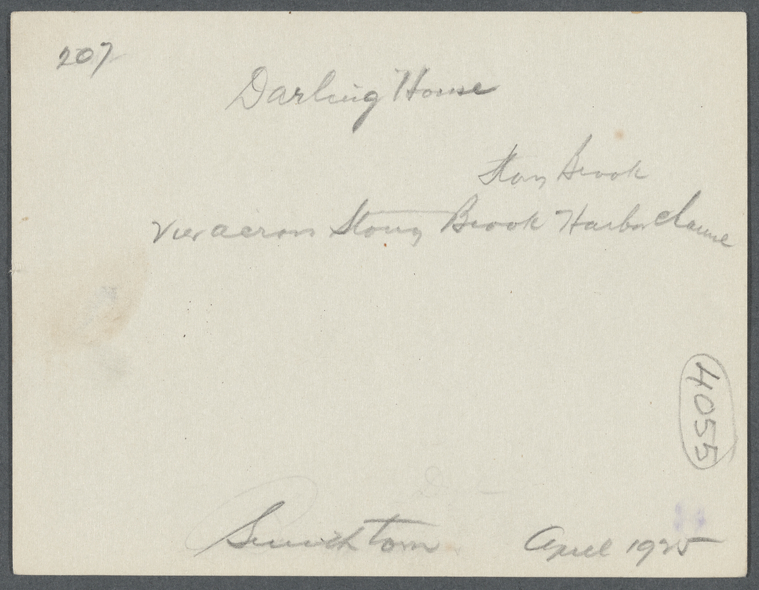 207
Darling House
Stony Brook
View across Stony Brook Harbor
4055
Smithtown April 1925